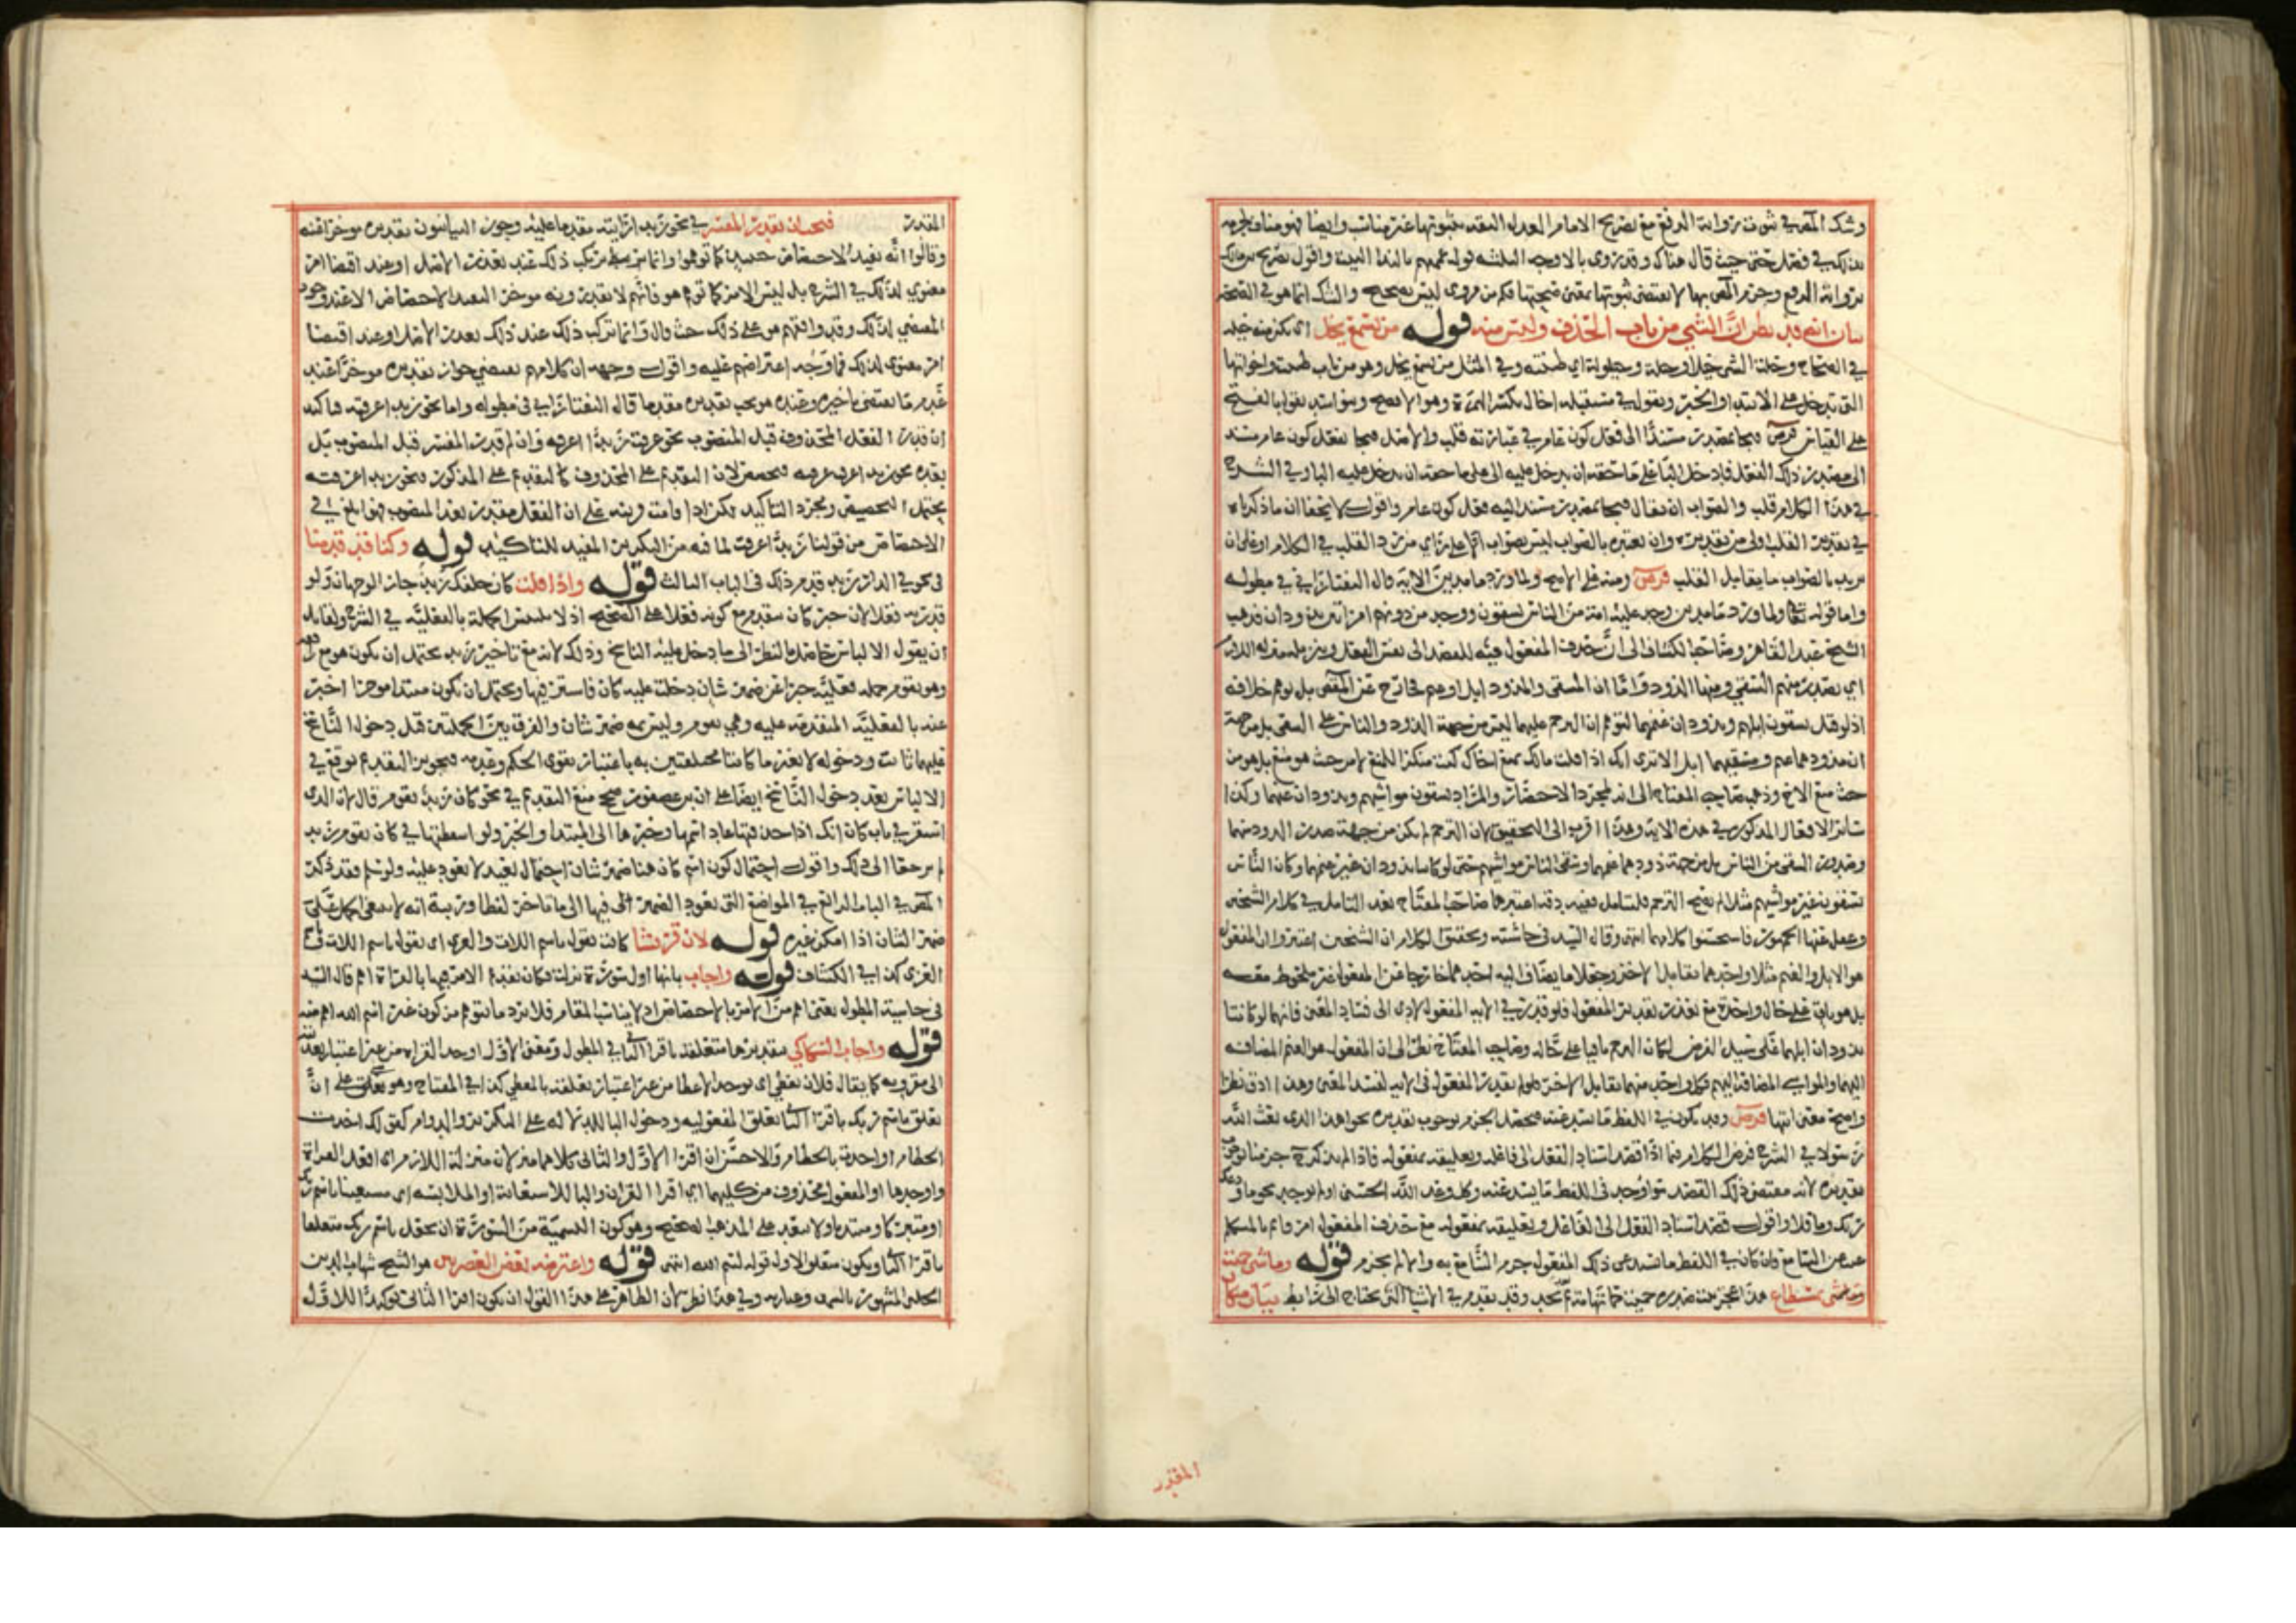 وشك المص في ثبوت رواية الرفع مع تصريح الامام العدل الثقة بثبوتها غير مناسب وايضا فهو مناف لجزمه
بذلك في فصل حتى حيث قال هناك وقد روى بالاوجه الثلثة قوله عممتهم بالندا البيت واقول تصريح
برواية الرفع وجزم المص بها لا يقتضى ثبوتها بمعنى صحتها فكم من مروى ليس بصحيح والشك انما هو في الصحة
بيان انه قد يظن ان الشي من باب الحذف وليس منه قوله من يسمع يخل اى يكن منه خيلة
في الصحاح وخلت الشي خيلا وخيلة وخيلولة اي ظننته وفي المثل من يسمع يخل وهو من باب ظننت واخواتها
التى تدخل على الابتدا والخبر وتقول في مستقبله اخال بكسر الهمزة وهو الافصح وبنو اسد يقول بالفتح
على القياس
الى مصدر ذلك الفعل فادخل البا على ما حقه ان يدخل عليه الى على ما حقه ان يدخل عليه البا وفي الشرح
في هذا الكلام قلب والصواب ان يقال فيجا بمصدر مستند اليه فعل كون عام واقول لا يخفى ان ما ذكراه
في تقدير القلب اولى من تقديره وان تعبيره بالصواب ليس بصواب انما على راي من رد القلب في الكلام او على ان
يريد بالصواب ما يقابل القلب قوله ومنه في الاصح ولما ورد ما مدين الاية قال التفتازاني في مطوله
واما قوله تعا ولما ورد ما مدين وجد عليه امة من الناس يسقون ووجد من دونهم امراتين تذودان فذهب
الشيخ عبد القاهر وصاحب الكشاف الى ان حذف المفعول فيه للقصد الى نفس الفعل
اي يصدر منهم السقي ومنهما الذود واما ان المسقى والمذود ابل او غنم فخارج عن المقصود بل يوهم خلافه
اذ لو قيل يسقون ابلهم وتذودان غنمهما لتوهم ان الترحم عليهما ليس من جهة الذود والناس على السقي بل من جهة
ان مذودهما غنم ومسقيهم ابل الا ترى انك اذا قلت مالك تمنع اخاك كنت منكرا للمنع لا من حيث هو منع بل هو من
حيث منع الاخ وذهب صاحب المفتاح الى انه لمجرد الاختصار والمراد يسقون مواشيهم وتذودان غنمهما وكذا
سائر الافعال المذكورة في هذه الاية وهذا اقرب الى التحقيق لان الترحم لم يكن من جهة صدور الذود منهما
وصدور السقي من الناس بل من جهة ذودهما غنمهما وسقى الناس مواشيهم حتى لو كانتا تذودان غير غنمهما وكان الناس
يسقون غير مواشيهم مثلا لم يصح الترحم فليتامل ففيه دقة اعتبرها صاحب المفتاح بعد التامل في كلام الشيخين
وغفل عنها الجمهور فاستحسنوا كلامهما انتهى وقال السيد في حاشيته وتحقيق الكلام ان الشيخين اعتبروا ان المفعول
هو الابل والغنم مثلا واحدهما يقابل الاخر وجعلا ما يضاف اليه احدهما خارجا عن المفعول غير ملحوظ معه
بل هو باق على حاله واحدة مع تقدير المفعول فلو قدر في الاية المفعول لادى الى فساد المعنى فانهما لو كانتا
تذودان ابلهما على سبيل الفرض لكان الترحم باقيا على حاله وصاحب المفتاح نظر الى ان المفعول هو الغنم المضافة
اليهما والمواشي المضافة اليهم فكل واحد منهما يقابل الاخر فلو لم يقدر المفعول في الاية لفسد المعنى وهذا ادق نظرا
واصح معنى انتها قوله وقد يكون في اللفظ ما يستدعيه فيحصل الجزم بوجوب تقديره نحو اهذا الذى بعث الله
رسولا في الشرح
تقديره لانه مقتضى ذلك القصد سوا وجد في اللفظ ما يستدعيه وكلا وعد الله الحسنى او لم يوجد نحو ما ودعك
ربك وما قلا واقول قصد اسناد الفعل الى الفاعل وتعليقه بمفعوله مع حذف المفعول امر قائم بالمتكلم
عند السامع فان كان في اللفظ ما يستدعى ذلك المفعول جزم السامع به والا لم يجزم قوله وما شي حميت
بمستباح هذا عجز بيت صدره حميت حمى تهامة بعد نجد وقد تقدم في الاشيا التى تحتاج الى رابط بيان مكان
المقدر
المقدر فيجب ان يقدر المفسر في نحو زيد ارايته مقدما عليه وجوز البيانيون تقديره موخرا عنه
وقالوا انه يفيد الاختصاص حينئذ كما توهموا وانما يرتكب ذلك عند تعذر الاصل او عند اقتضا امر
معنوي لذلك في الشرح بل ليس الامر كما توهم هو فانهم لا يقدرونه موخرا لقصد الاختصاص الا عند وجود
المقتضي لذلك وقد وافقهم هو على ذلك حيث قال وانما يرتكب ذلك عند ذلك تعذر الاصل او عند اقتضا
امر معنوي لذلك فما وجه اعتراضهم عليه واقول وجهه ان كلامهم يقتضي جواز تقديره موخرا عند
عدم ما يقتضى تاخيره وعنده هو يجب تقديره مقدما قال التفتازاني في مطوله واما نحو زيد اعرفته فتاكيد
ان قدر الفعل المحذوف قبل المنصوب نحو عرفت زيدا اعرفه وان لم يقدر المفسر قبل المنصوب بل
بعده نحو زيد اعرفت عرفته فتخصيص لان التقديم على المحذوف كالتقديم على المذكور فنحو زيد اعرفته
يحتمل التخصيص ومجرد التاكيد لكن اذا قامت قرينة على ان الفعل مقدر بعد المنصوب فهو ابلغ في
الاختصاص من قولنا زيدا عرفت لما فيه من التكرير المفيد للتاكيد قوله وكنا قد قدمنا
في نحو في الدار زيد قدم ذلك في الباب الثالث قوله واذا قلت كان خلفك زيد جاز الوجهان ولو
قدرته فعلا لان خبر كان يتقدم مع كونه فعلا على الصحيح اذ لا تلتبس الجملة بالفعلية في الشرح ولقائل
ان يقول الالباس حاصل بالنظر الى ما دخل عليه الناسخ وذلك لانه مع تاخير زيد يحتمل ان يكون هو مع رافعه
وهو يقوم جملة فعلية خبرا عن ضمير شان دخلت عليه كان فاستتر فيها ويحتمل ان يكون مبتدا موخرا اخبر
عنه بالفعلية المتقدمة عليه وهي يقوم وليس ثمه ضمير شان والفرق بين الجملتين قبل دخول الناسخ
عليهما ثابت ودخوله لا يغير ما كانتا مختلفتين به باعتبار تقوى الحكم وعدمه فتجويز التقديم يوقع في
الالباس بعد دخول الناسخ ايضا على ان ابن عصفور صحح منع التقديم في نحو كان زيد يقوم قال لان الذى
استقر في باب كان انك اذا حذفتها عاد اسمها وخبرها الى المبتدا والخبر ولو اسقطتها في كان يقوم زيد
لم يرجعا الى ذلك واقول احتمال كون اسم كان هنا ضمير شان احتمال بعيد لا يعود عليه ولو سلم فقد ذكر
المص في الباب الرابع في المواضع التى يعود الضمير فيها الى ما تاخر لفظا ورتبة انه لا ينبغى الحمل على
ضمير الشان اذا امكن غيره قوله لان قريشا كانت تقول باسم اللات والعزى اى تقول باسم اللات باسم
العزى كذا في الكشاف قوله واجاب بانها اول سورة نزلت فكان تقديم الامر فيها بالقراة اهم قال السيد
في حاشية المطول يعنى اهم من الامر بالاختصاص اذ لا يناسب المقام فلا يرد ما يتوهم من كون غير اسم الله اهم منه
قوله واجاب السكاكي بتقديرها متعلقة باقرا الثاني في المطول ومعنى الاول اوجد القراءة من غير اعتبار تعديته
الى مقرو به كما يقال فلان يعطي اى يوجد الاعطا من غير اعتبار تعلقه بالمعطى كذا في المفتاح وهو مبنى على ان
تعلق باسم ربك باقرا الثانى تعلق المفعولية ودخول البا للدلالة على التكرير والدوام كقولك اخذت
الخطام او اخذت بالخطام والاحسن ان اقرا الاول والثانى كلاهما منزلان منزلة اللازم اى افعل القراة
واوجدها او المفعول محذوف من كليهما اى اقرا القران والبا للاستعانة او الملابسة اى مستعينا باسم ربك
او متبركا ومبتديا به ولا يبعد على المذهب الصحيح وهو كون التسمية من السورة ان يجعل باسم ربك متعلقا
باقرا الثاني ويكون متعلق الاول قوله بسم الله انتهى قوله واعترضه بعض العصريين هو الشيخ شهاب الدين
الحلبي المشهور بالسمين وعبارته وفي هذا نظر لان الظاهر على هذا القول ان يكون اقرا الثانى توكيدا للاول